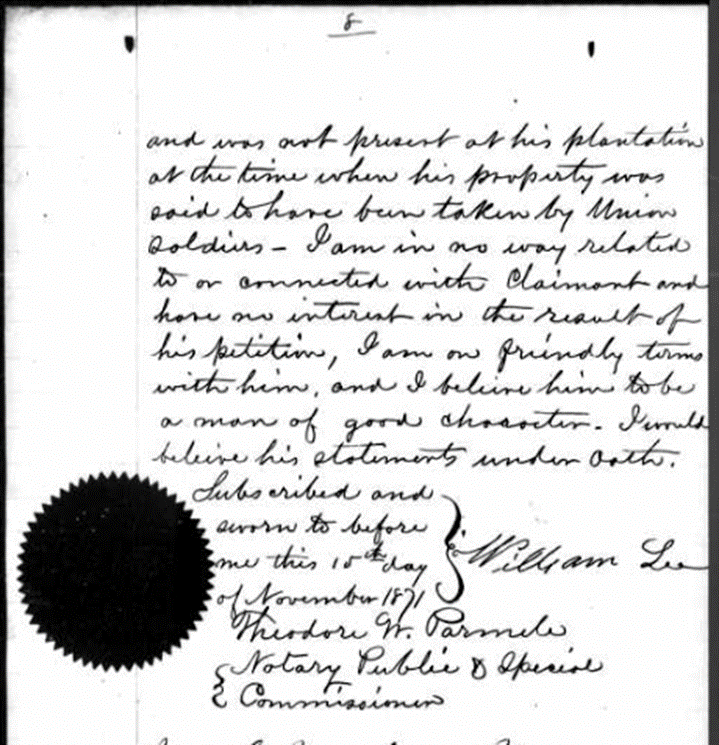 8
and was not present at his plantation
at the time when his property was
said to have been taken by Union
soldiers - I am in no way related
to or connected with Claimant and
have no interest in the result of
his petition, I am on friendly terms
with him, and I beleive him to be
a man of good character. I would
beleive his statements under oath.
Subscribed and
sworn to before
me this 15th day
of November 1871
William Lee
Theodore W. Parmele
Notary Public & Special
Commissioner